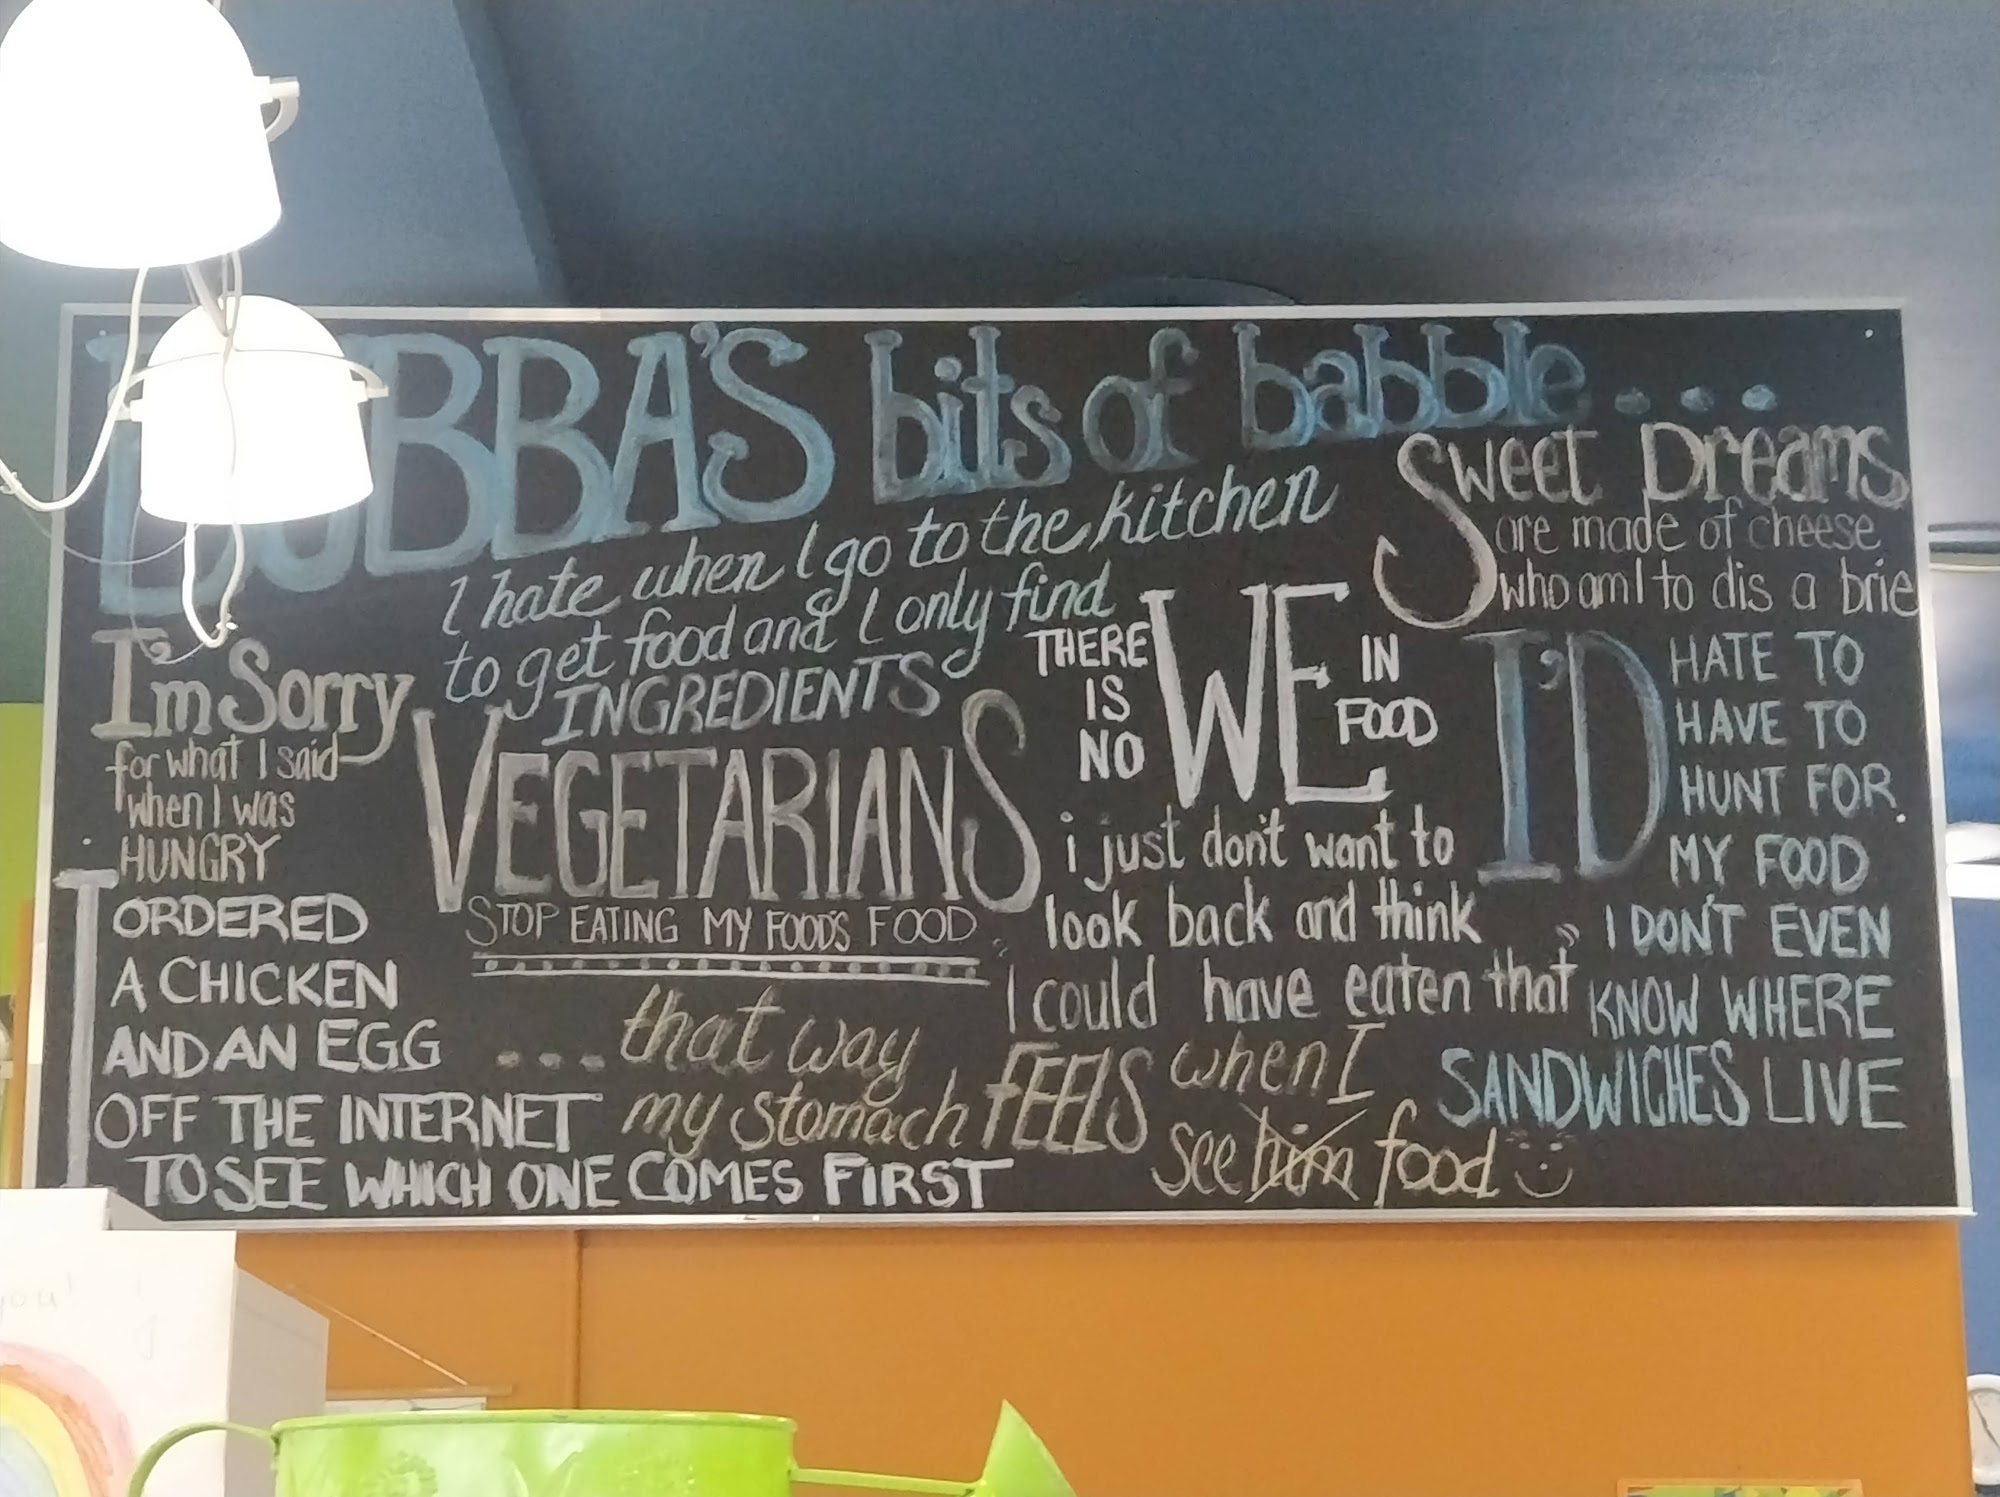 BUBBA'S bits of babble....
I hate when I go to the kitchen
to get food and I only find
INGREDIENTS
Sweet Dreams
are made of cheese
who am I to dis a brie
I'm Sorry
for what I said
when I was
HUNGRY
VEGETARIANS
STOP EATING MY FOOD'S FOOD
THERE
IS
NO
WE
IN
FOOD
I'D
HATE TO
HAVE TO
HUNT FOR
MY FOOD
I DON'T EVEN
KNOW WHERE
SANDWICHES LIVE
i just don't want to
look back and think
"I could have eaten that"
I
ORDERED
A CHICKEN
AND AN EGG
OFF THE INTERNET
TO SEE WHICH ONE COMES FIRST
...that way
my stomach FEELS when I
see him food
you!